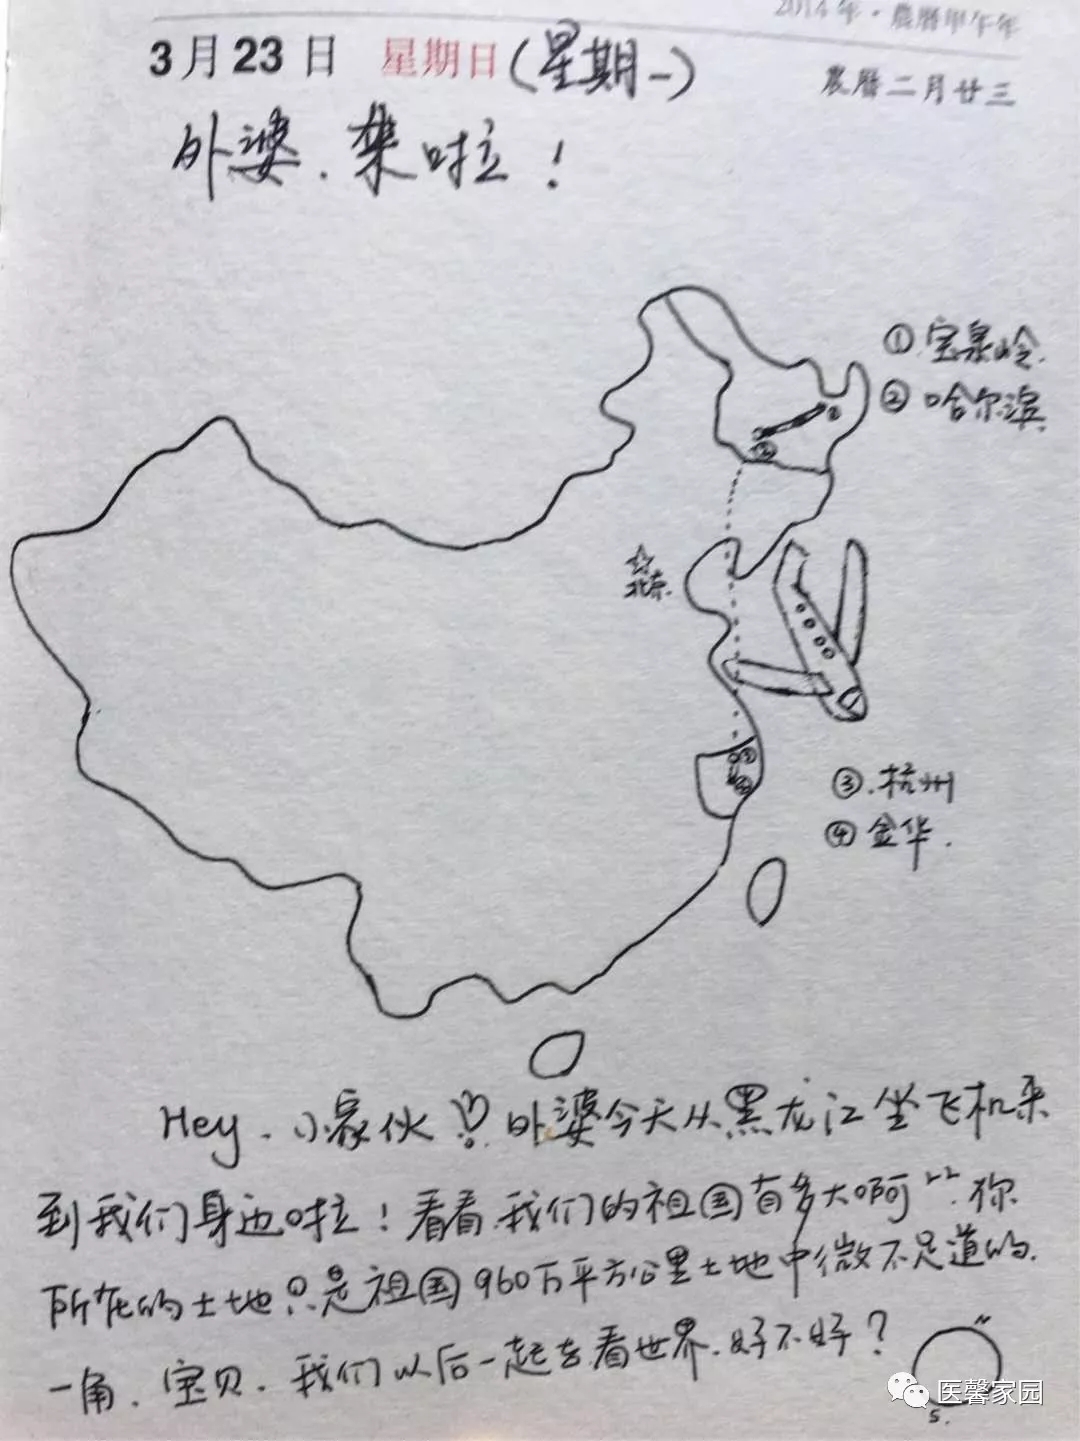 2014年·農曆甲午年
3月23日 星期日(星期一)
農曆二月廿三
外婆.来啦!
①宝泉岭.
②哈尔滨.
①
②
北京.
③
④
③.杭州
④金华.
Hey.小家伙!外婆今天从黑龙江坐飞机来
到我们身边啦!看看.我们的祖国有多大啊^^.你
所在的土地只是祖国960万平方公里土地中微不足道的.
一角.宝贝.我们以后一起去看世界.好不好?
N
S.
医馨家园